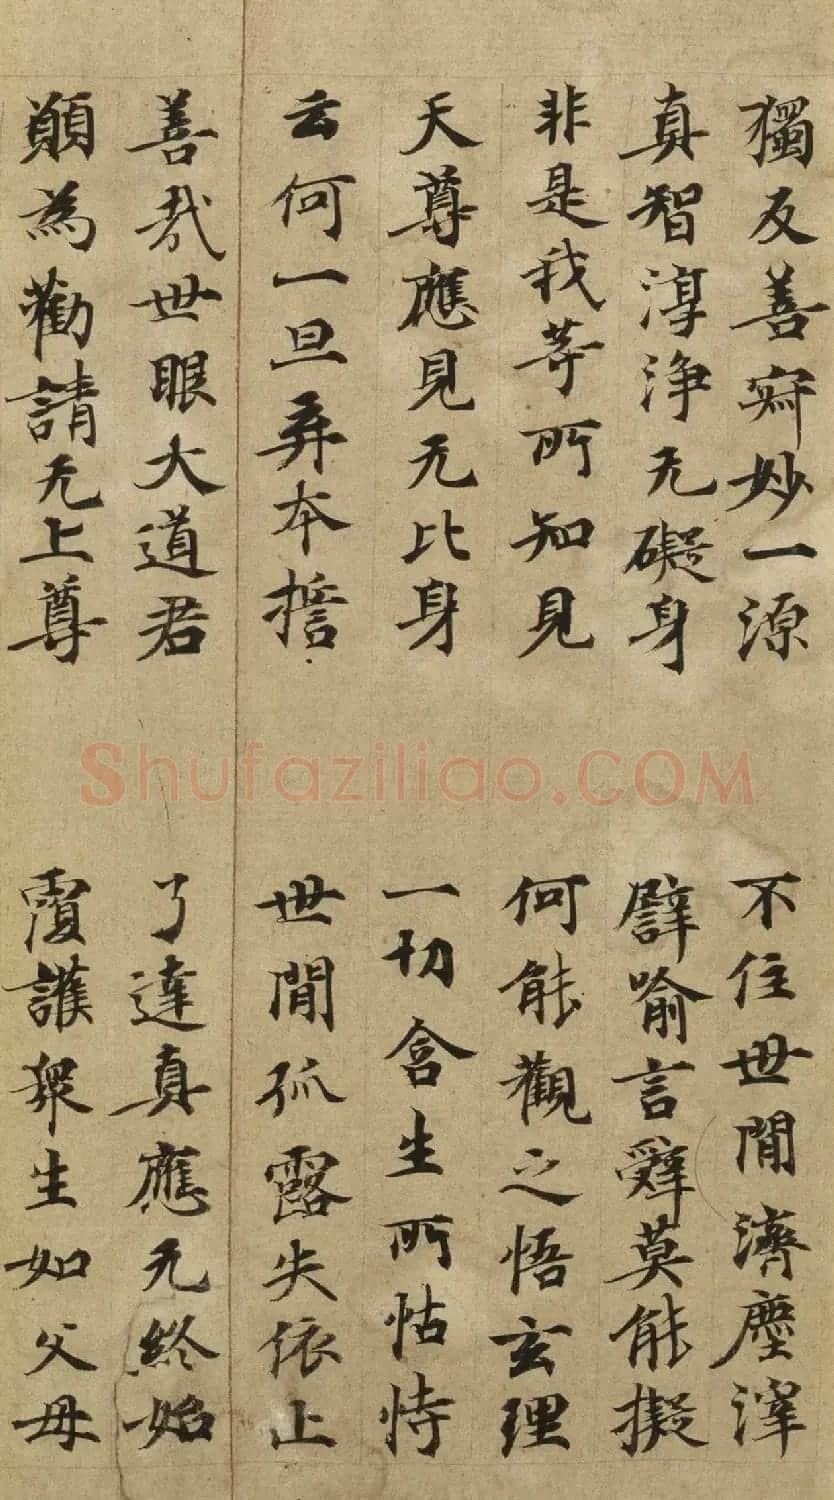 獨反善寂妙一源 不住世間濟塵滓
真智淳淨无礙身 譬喻言辭莫能擬
非是我等所知見 何能觀之悟玄理
天尊應見无比身 一切含生所怙恃
云何一旦弃本誓 世間孤露失依止
善哉世眼大道君 了達真應无終始
願為勸請无上尊 覆護衆生如父母
Shufaziliao.COM